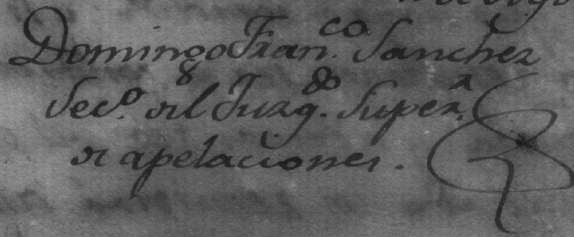 Domingo Fran.co Sanchez
Sec.º del Juzg.do Super.r
de apelaciones.